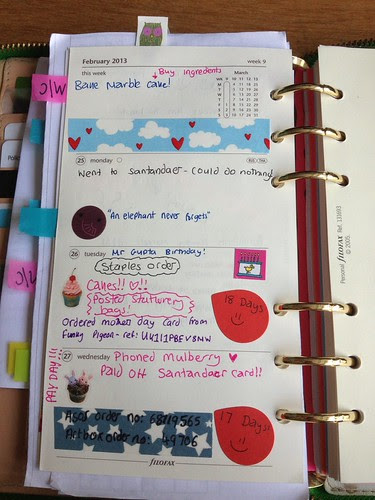 February 2013
week 9
this week
Buy ingredients
March
Bake Marble cake!
25 monday
Went to santandaer - could do nothing
"An elephant never forgets"
26 tuesday
Mr Gupta Birthday!
Staples order
Cakes!!
18 Days
Posted stationery
bags!
Ordered mothers day card from
Funky Pigeon - ref:
27 wednesday
Phoned Mulberry
Paid off Santandaer card!!
PAY DAY!!!
17 Days!
Asos order no: 68719565
Artbox order no: 49706
FILOFAX
Personal
FILOFAX Ref. 131893
© 2005.